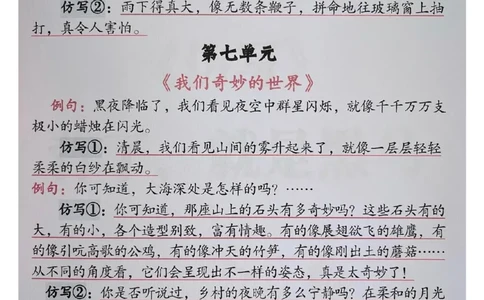 仿写②：雨下得真大，像无数条鞭子，拼命地往玻璃窗上抽
打，真令人害怕。
第七单元
《我们奇妙的世界》
例句：黑夜降临了，我们看见夜空中群星闪烁，就像千千万万支
极小的蜡烛在闪光。
仿写①：清晨，我们看见山间的雾升起来了，就像一层层轻轻
柔柔的白纱在飘动。
例句：你可知道，大海深处是怎样的吗？……
仿写①：你可知道，那座山上的石头有多奇妙吗？这些石头有的
大，有的小，各个造型别致，富有情趣。有的像展翅欲飞的雄鹰，有
的像引吭高歌的公鸡，有的像冲天的竹笋，有的像刚出土的蘑菇……
从不同的角度看，它们会呈现出不一样的姿态，真是太奇妙了！
仿写②：你是否听说过，乡村的夜晚有多么宁静吗？在柔和的月光